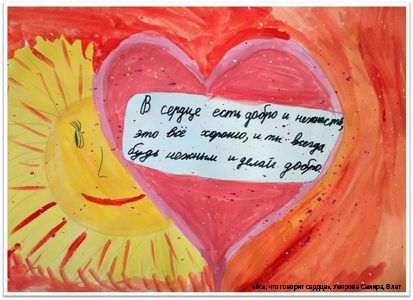 В сердце есть добро и нежность,
это всё хорошо, и ты всегда
будь нежным и делай добро.
«Все, что говорит сердце», Умярова Самира, 8 лет